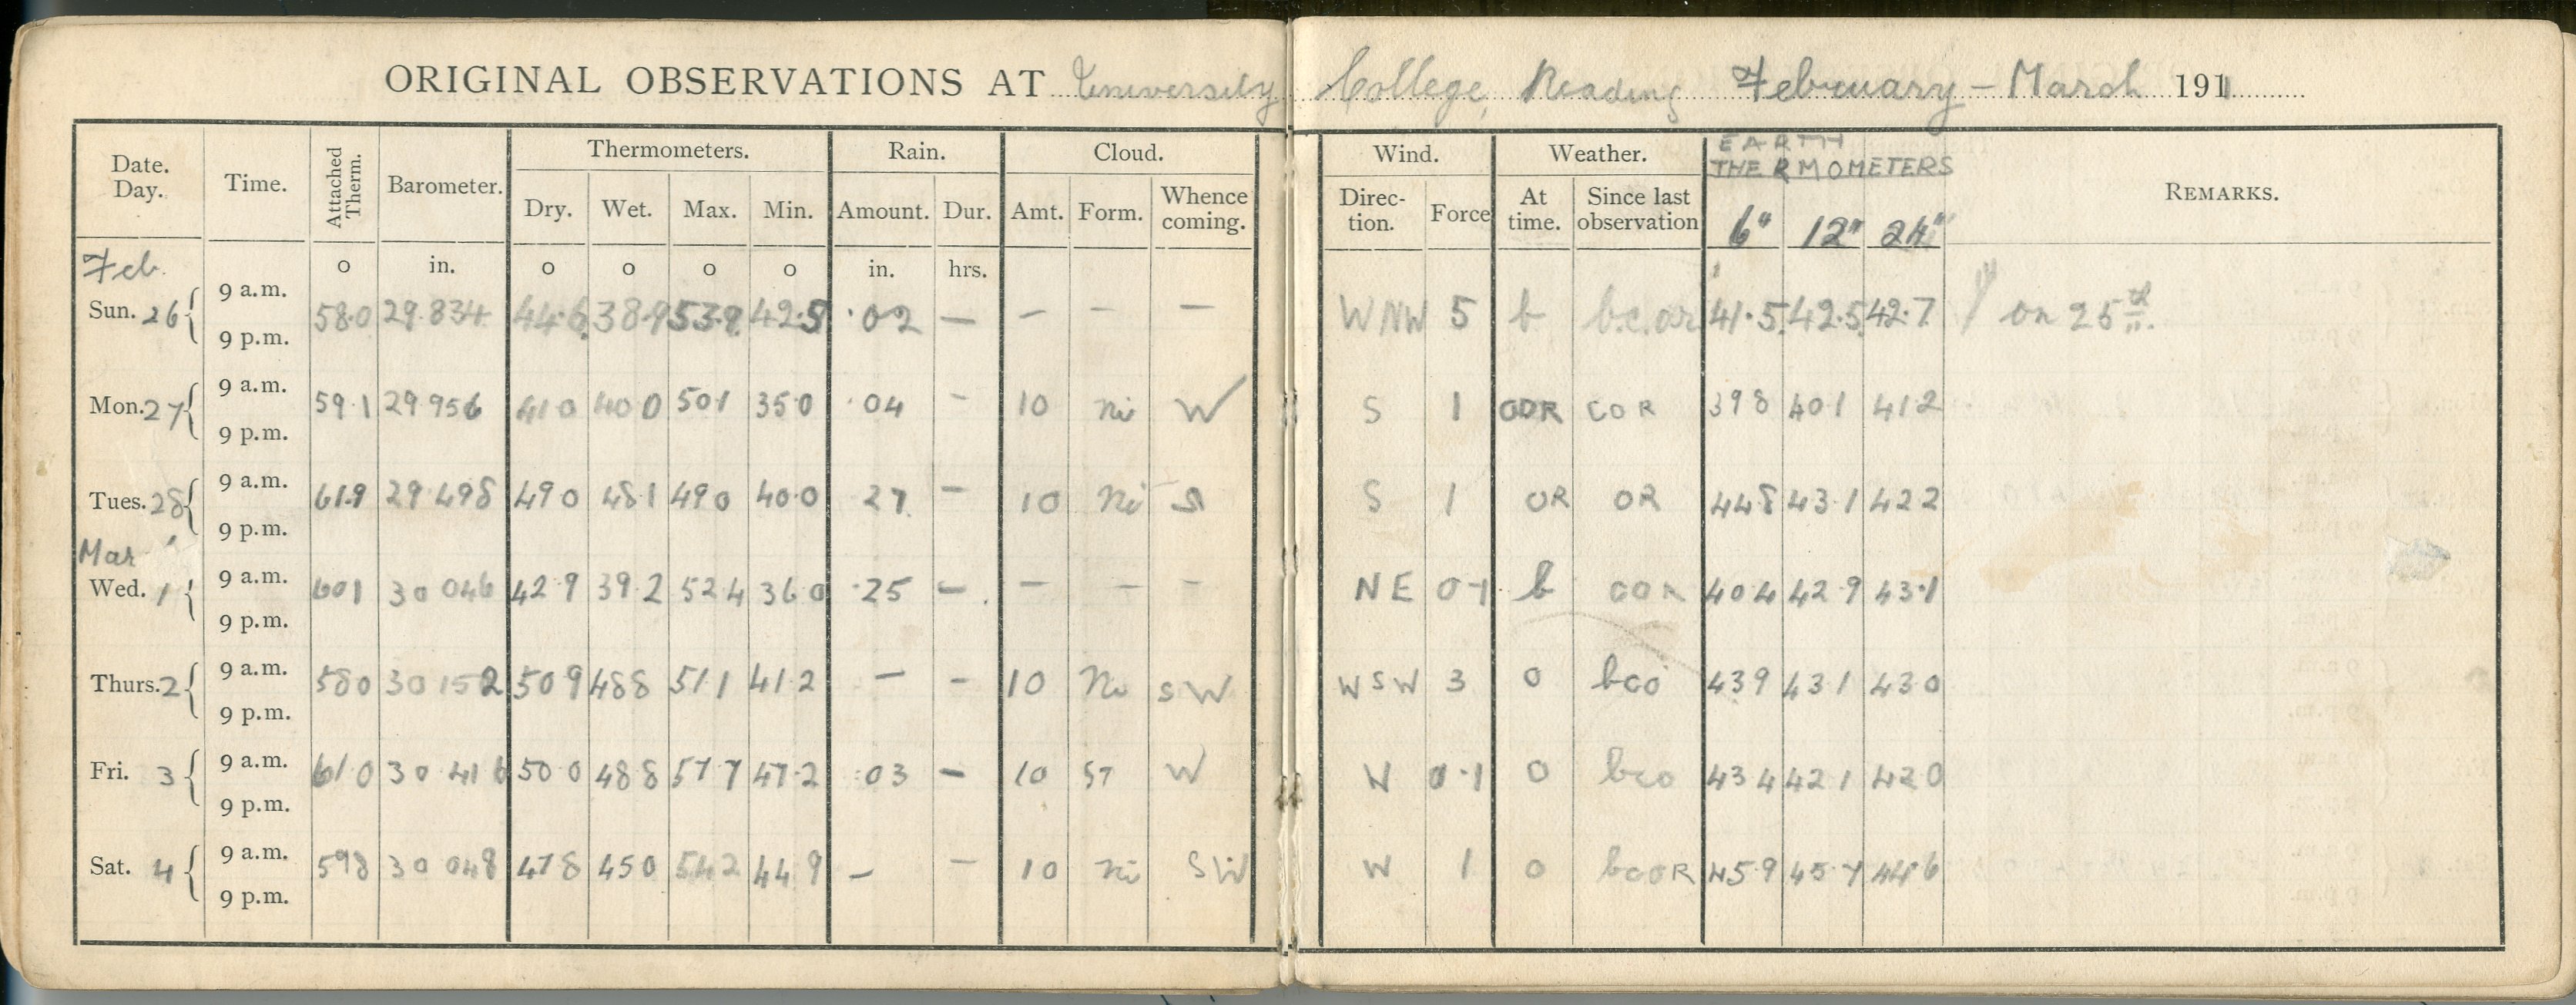 ORIGINAL OBSERVATIONS AT University College, Reading February – March 1911
Date. Day. Time. Attached Therm. Barometer. Thermometers. Rain. Cloud. Wind. Weather. EARTH THERMOMETERS REMARKS.
Dry. Wet. Max. Min. Amount. Dur. Amt. Form. Whence coming. Direc- tion. Force At time. Since last observation 6" 12" 24"
Feb. o in. o o o o in. hrs.
9 a.m.
Sun. 26 58.0 29.834 44.6 38.9 53.9 42.5 .02 — — — — WNW 5 b b.c.or 41.5 42.5 42.7 on 25th
9 p.m.
9 a.m.
Mon. 27 59 1 29 956 41 0 40 0 50 1 35 0 .04 - 10 Ni W S 1 ODR COR 39 8 40 1 41 2
9 p.m.
9 a.m.
Tues. 28 61.9 29 498 49 0 48 1 49 0 40.0 27 - 10 Ni S S 1 OR OR 44 8 43 1 42 2
9 p.m.
Mar
9 a.m.
Wed. 1 60 1 30 046 42 9 39 2 52 4 36 0 .25 - - - - NE 0-1 b COR 40 4 42 9 43.1
9 p.m.
9 a.m.
Thurs. 2 58 0 30 152 50 9 48 8 51 1 41 2 - - 10 Ni SW WSW 3 0 bco 43 9 43 1 43 0
9 p.m.
9 a.m.
Fri. 3 61 0 30 416 50 0 48 8 57 7 47.2 .03 - 10 ST W W 0.1 0 bco 43 4 42 1 42 0
9 p.m.
9 a.m.
Sat. 4 59 8 30 048 47 8 45 0 54 2 44 9 - - 10 Ni SW W 1 0 bcoR 45.9 45.7 44.6
9 p.m.